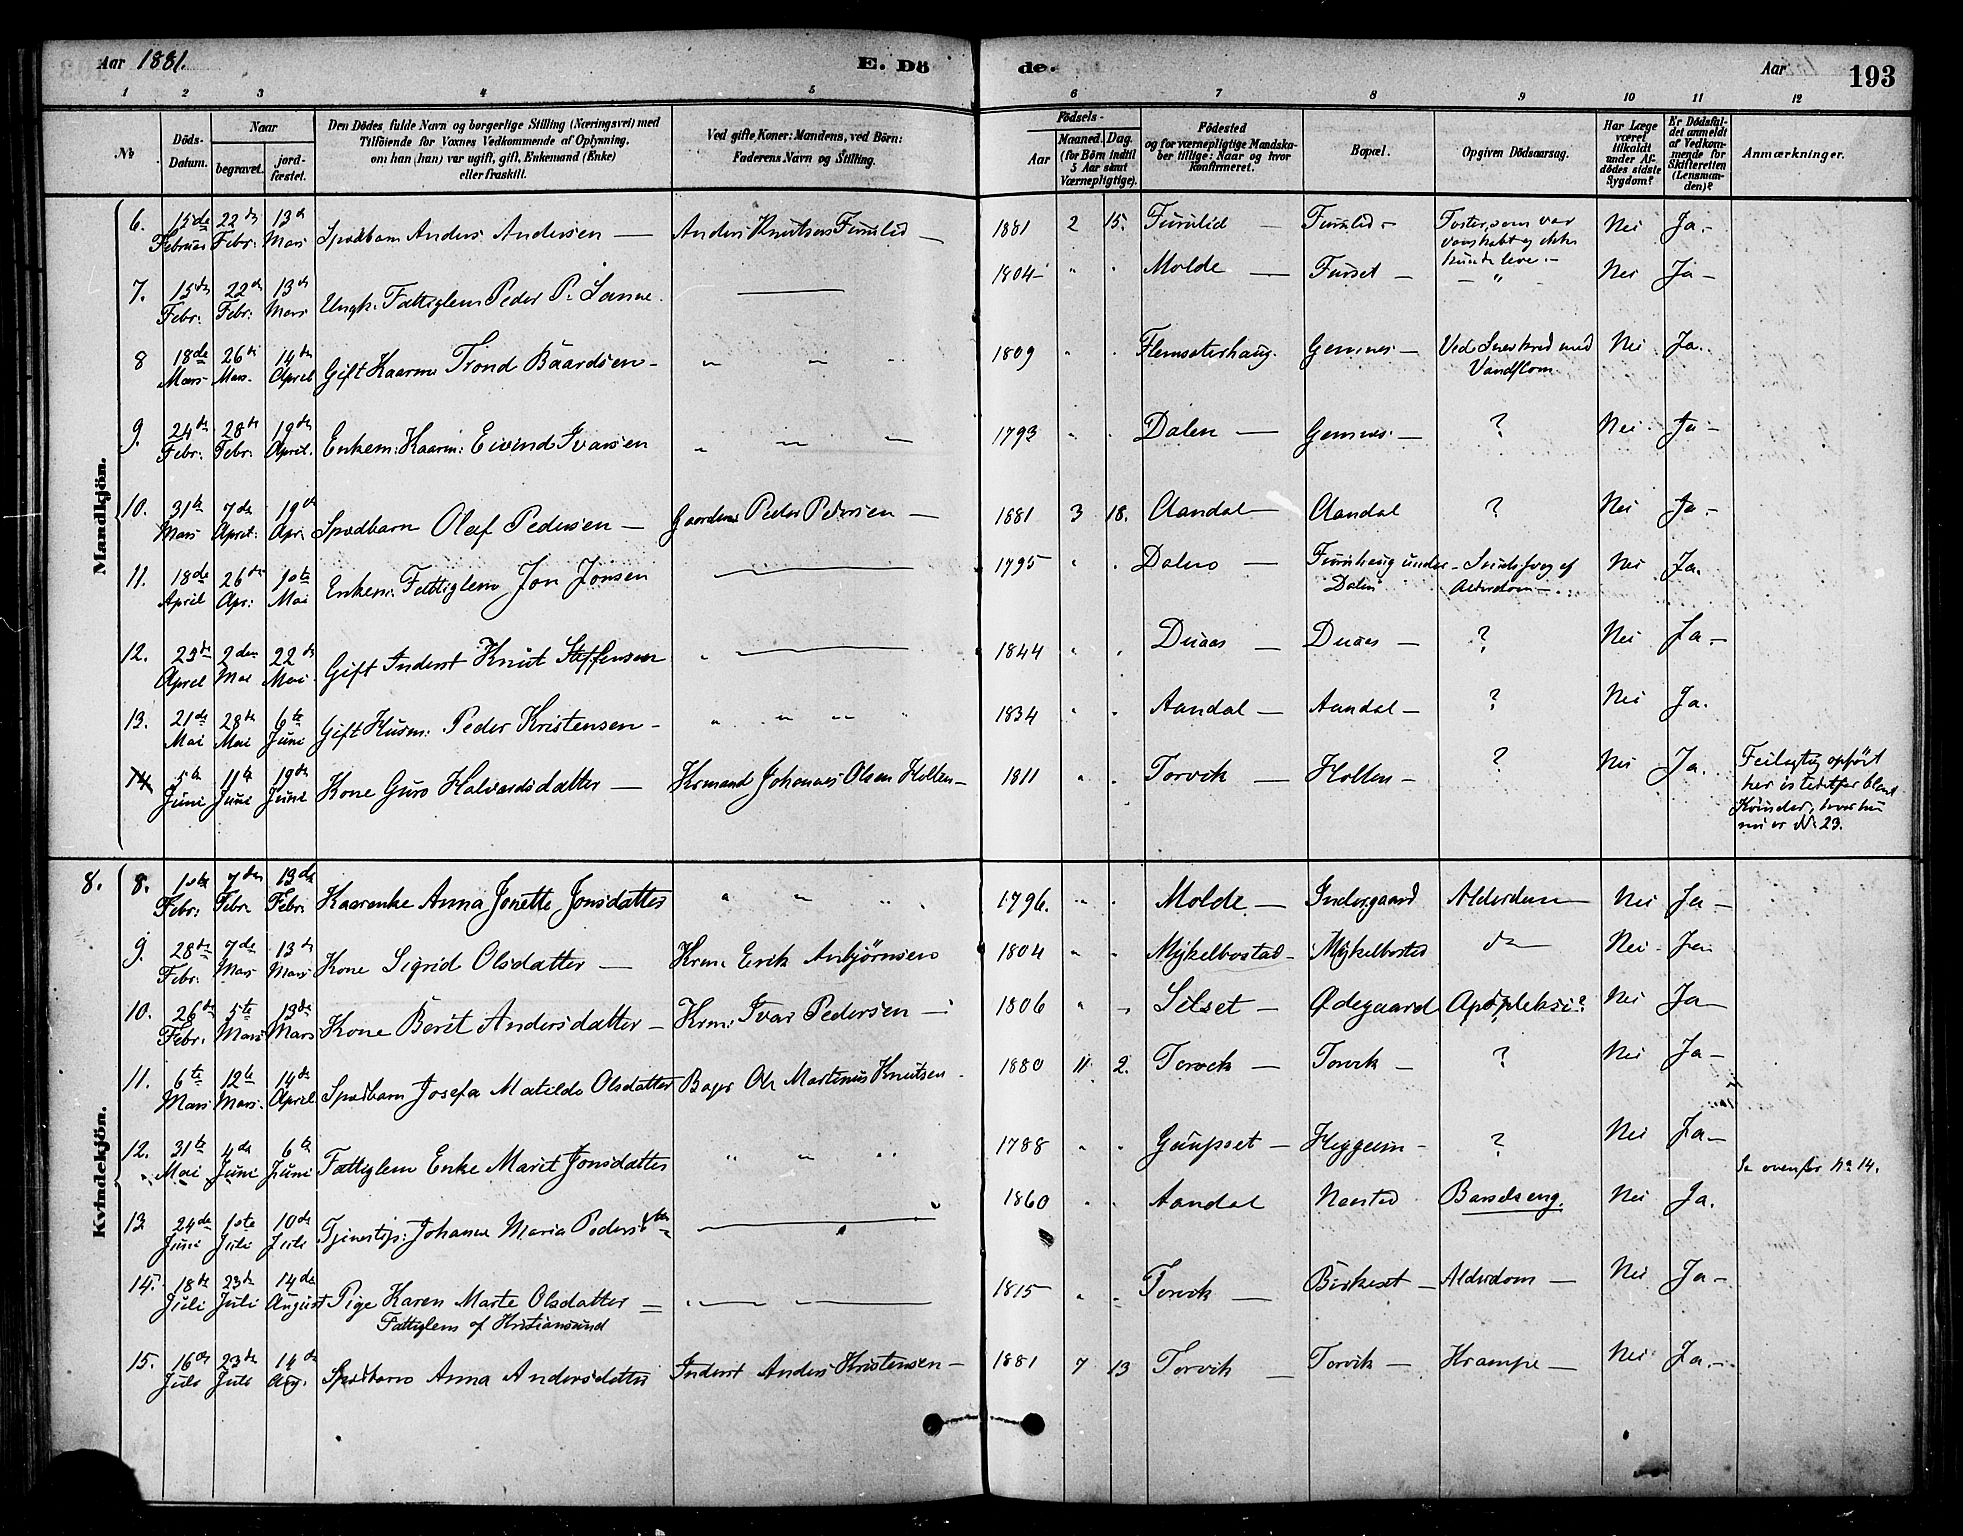 Aar 1881.
E. Dö
de.
Aar
193
1 2 3 4 5 6 7 8 9 10 11 12
No
Döds-
Datum.
Naar
begravet.
jord-
fæstet.
Den Dödes fulde Navn og borgerlige Stilling (Næringsvei) med
Tilföiende for Voxnes Vedkommende af Oplysning,
om han (hun) var ugift, gift, Enkemand (Enke)
eller fraskilt.
Ved gifte Koner: Mandens, ved Börn:
Faderens Navn og Stilling.
Födsels-
Aar
Maaned. Dag.
(for Börn indtil
5 Aar samt
Værnepligtige).
Födested
og for værnepligtige Mandska-
ber tillige: Naar og hvor
konfirmeret.
Bopæl.
Opgiven Dödsaarsag.
Har Læge
været
tilkaldt
under Af-
dödes sidste
Sygdom?
Er Dödsfal-
det anmeldt
af Vedkom-
mende for
Skifteretten
(Lensman-
den)?
Anmærkninger.
Mandkjön.
6. 15de Februar 22de Febr. 13de Mars Spædbarn Anders Andersen — Anders Knutsen — 1881 2 15. — Foster, som var vanskabt og ikke kunde leve. — Nei Ja. —
7. 15de Febr. 22de Febr. 13de Mars Ungk. Fattiglem Peder P. — 1804 — " " Molde — Furset — — " — Nei Ja —
8 18de Mars 26de Mars. 14de April Gift Kaarm. Trond Baardsen — " " " 1809 " " Flemsæterhaug. Gjemnes — Ved Sneskred med Nei Ja.
9. 24de Febr. 28de Febr. 19de April. Enkem: Kaarm: Eivind Ivarsen " " " 1793 " " Dalen — Gjemnes. — ? Nei Ja —
10. 31te Mars 7de April. 19de Apr. Spædbarn Olaf Pedersen — Peder Pedersen — 1881 3 18. Aandal — Aandal ? Nei Ja. —
11. 18de April 26de Apr: 10te Mai Enkem: Fattiglem Jon Jonsen — 1795 " " — under Dalen — af Alderdom — Nei Ja.
12. 23de April 2den Mai 22de Mai Gift Inderst Knut Steffensen " — 1844 " " Duaas — Duaas — ? Nei Ja —
13. 21de Mai 28de Mai 6te Juni Gift Husm: Peder Kristensen — " " " " 1834 " " Aandal — Aandal — ? Nei Ja.
14 5te Juni 11te Juni 19de Juni Kone Guro Halvardsdatter — Krmand Johannes Olsen Holten — 1811 " " Torvik — Holten — ? Nei Ja. Feilagtig opfört her istedetfor blant Kvinder, hvor hun nu er No 23.
Kvindekjön.
8. 8. 10de Febr: 7de Febr. 13de Febr. Anna Jonette Jonsdatter " " " 1796. " " Molde. — Indergaard Alderdom — Nei Ja —
9. 28de Febr. 7de Mars 13de Mars Kone Sigrid Olsdatter — Krm. Erik Anbjörnsen 1804 " " Mykelbostad — Mykelbostad do — Nei. Ja.
10. 26de Febr. 5te Mars 13de Mars Kone Berit Andersdatter — Krm. Ivar Pedersen — 1806 " " Silset — Ødegaard Apopleksi? Nei Ja —
11. 6te Mars 12te Mars. 14de April Spædbarn Josefa Matilde Olsdatter Bager Ole Martinus Knutsen 1880 11 2. Torvik — Torvik — ? Nei Ja —
12. 31te Mai 4de Juni 6te Juni Fattiglem Enke Marit Jonsdatter " " " 1788 " " Gaupset — Heggem — ? Nei Ja — Se ovenfor No 14.
13 24de Juni 1ste Juli 10de Juli Tjenestep: Johanne Maria Pedersdtr — 1860 " " Aandal Næsted Barselseng. Nei Ja.
14. 18de Juli 23de Juli 14de August Pige Karen Marte Olsdatter — " " — 1815 " " Torvik — Birkeset — Alderdom — Nei Ja —
Fattiglem af Kristiansund
15. 16de Juli 23de Juli 14de Aug. Spædbarn Anna Andersdatter Inderst Anders Kristensen — 1881 7 13 Torvik — Torvik — Krampe — Nei Ja. —